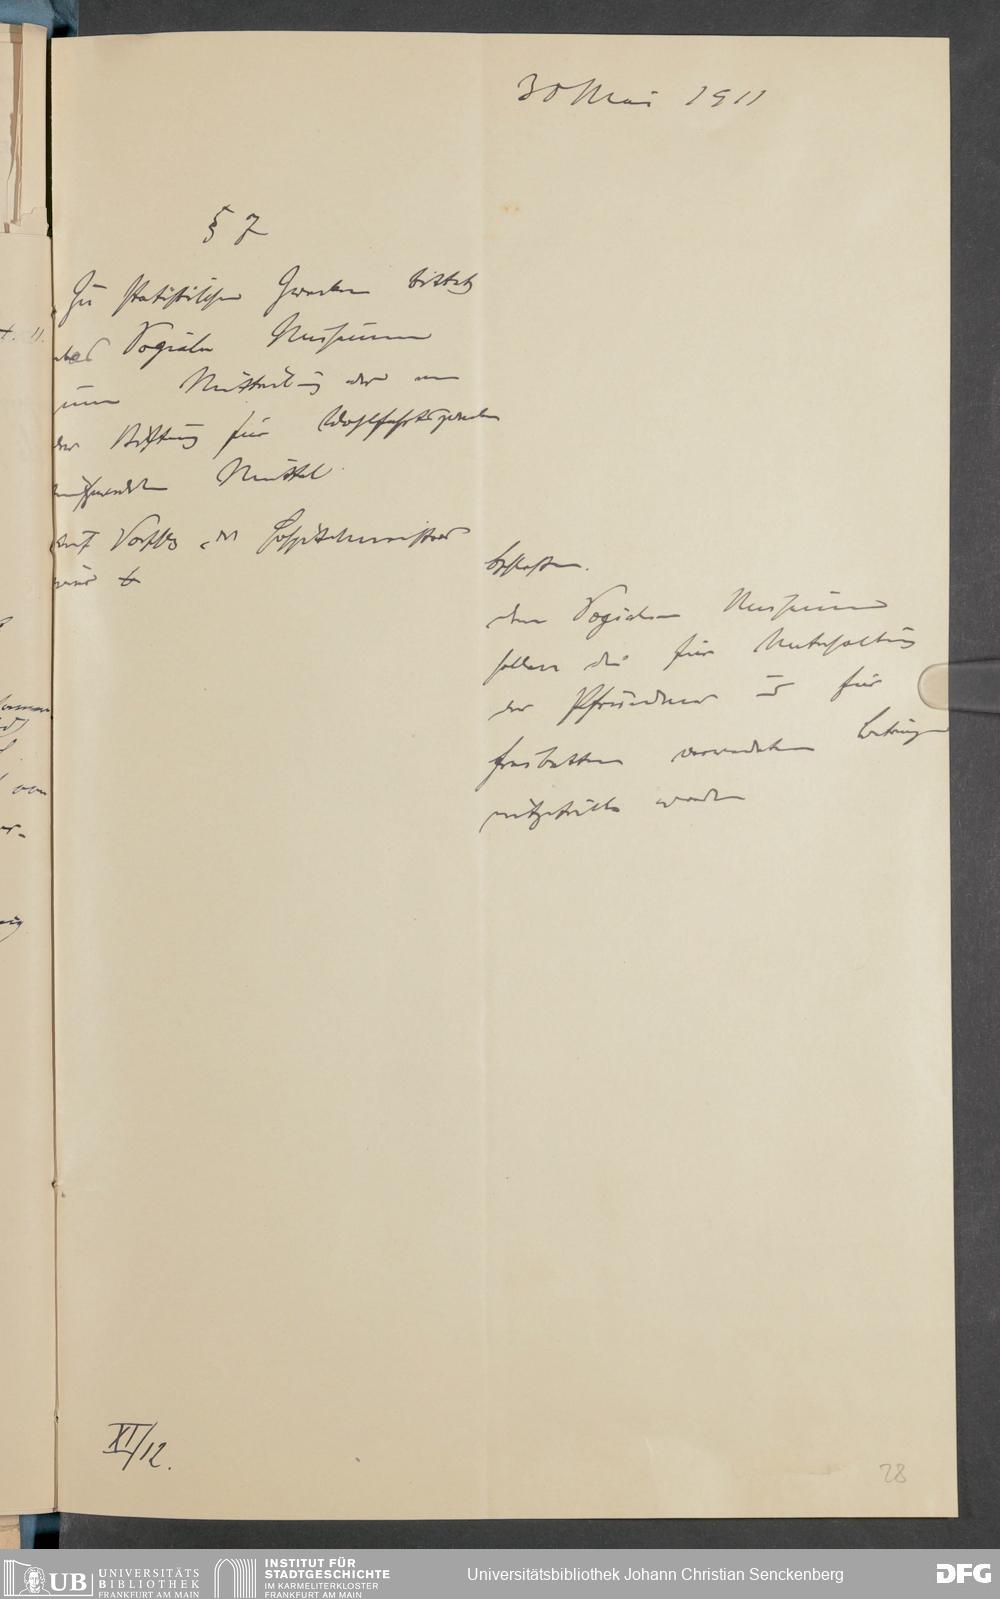 30 Mai 1911
§ 7
Zu statistischen Zwecken bittet
das Soziale Museum
um Mitteilung der von
der Stiftung für Wohlfahrtszwecke
aufgewendeten Mittel.
Auf Vorschlag des Hospitalmeisters
wird
beschlossen.
dem Sozialen Museum
sollen die für Unterhaltung
der Pfründner u für
Freibetten verwendeten Beträge
mitgeteilt werden
XI/12.
28
UB UNIVERSITÄTS
BIBLIOTHEK
FRANKFURT AM MAIN
INSTITUT FÜR
STADTGESCHICHTE
IM KARMELITERKLOSTER
FRANKFURT AM MAIN
Universitätsbibliothek Johann Christian Senckenberg
DFG